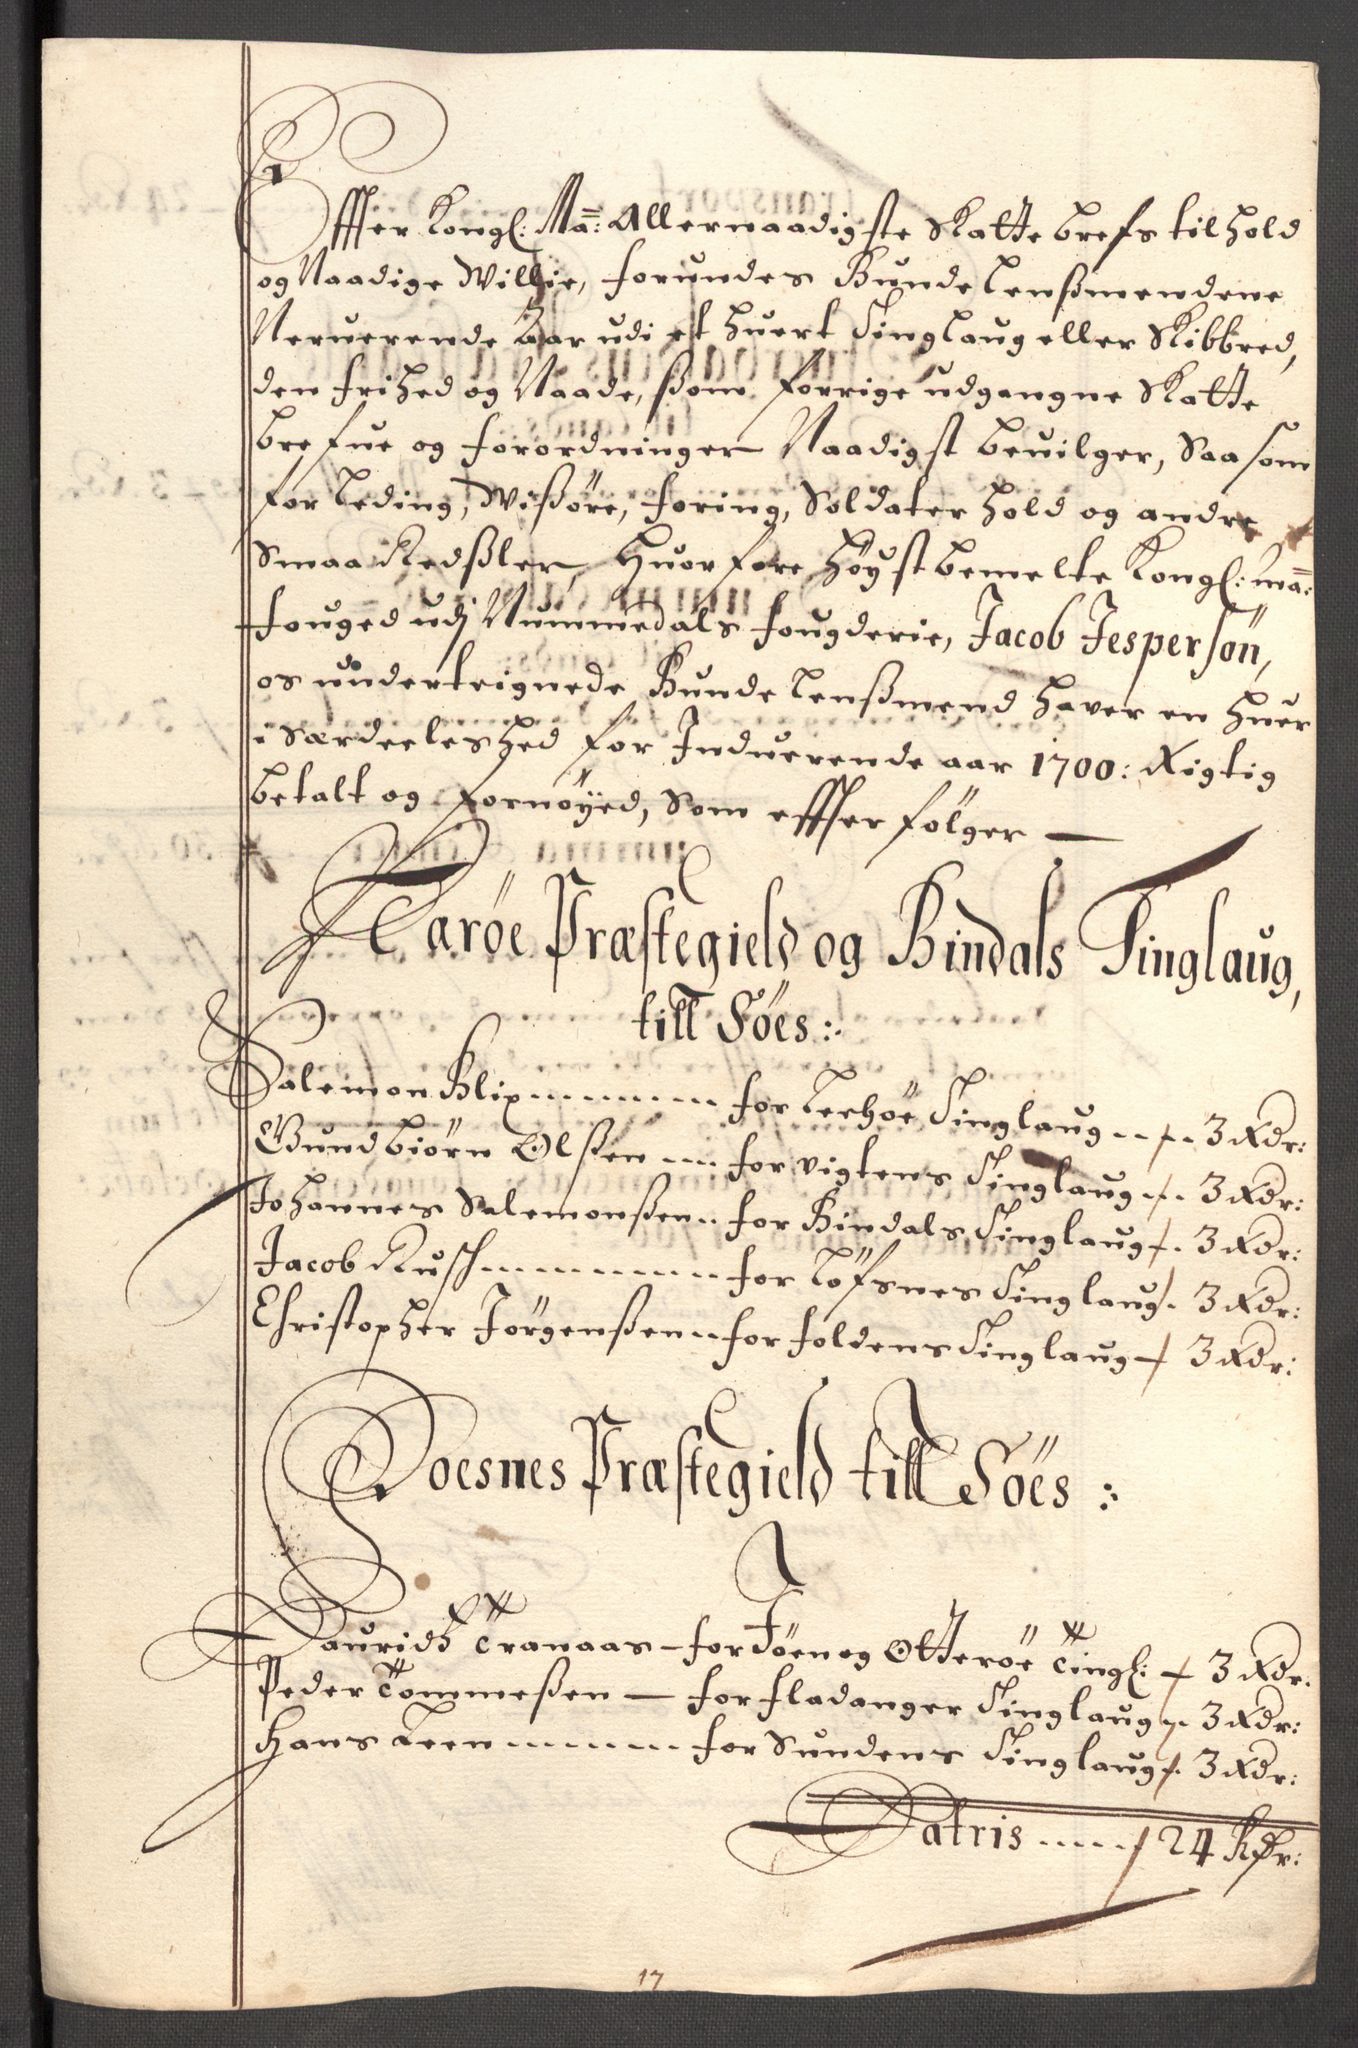 Effter Kongl: Ma: Allernaadigste Skatte brefs tilhold
og Naadige Willie, forundes Bunde Lenßmendene
Neruerende Aar udi et huert Tinglaug eller Skibbred,
den frihed og Naade, ßom forrige udgangne Skatte
brefue og forordninger Naadigst beuilger, Saasom
for Leding, Wißøre, foring, Soldaterhold og andre
Smaa Redßler, Huorfore høystbemelte Kongl: Ma:
fouged udj Nummedals fougderie, Jacob Jespersøn,
os underteignede Bunde Lenßmend haver en huer
i Særdeeleshed for Induerende aar 1700: Rigtig
betalt og fornøyed, Som effter følger
Narøe Præstegield og Bindals Tinglaug,
till Søes:
Salemon Blix for Leehøe Tinglaug 3 Rdr:
Gundbiørn Olßen for vigtens Tinglaug 3 Rdr:
Johannes Salemonßen for Bindals Tinglaug 3 Rdr:
Jacob Rusch for Løfsnes Tinglaug 3 Rdr:
Christopher Jørgenßen for foldens Tinglaug 3 Rdr:
Foesnes Præstegield till Søes:
Lauridtz Tranaas for Jøen og Otterøe Tingl: 3 Rdr:
Peder Tommeßen for fladanger Tinglaug 3 Rdr:
Hans Leen for Sundens Tinglaug 3 Rdr:
Latris 24 Rdr:
17